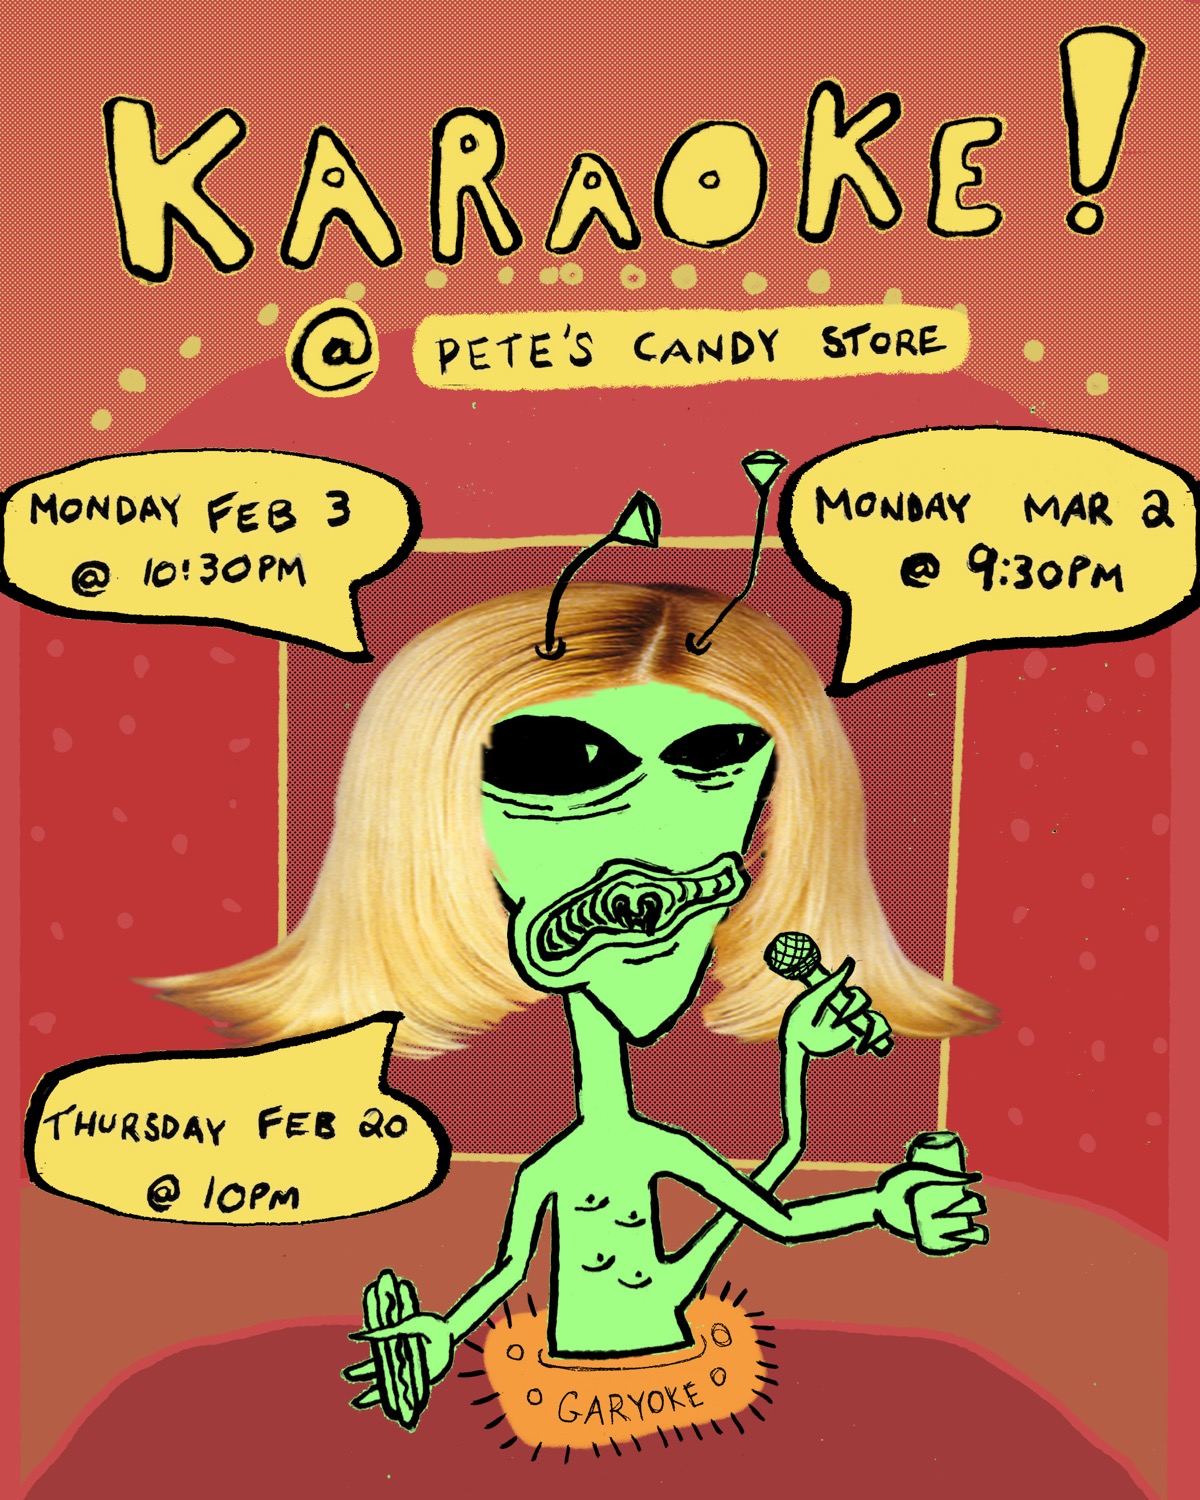 KARAOKE!
@ PETE'S CANDY STORE
MONDAY FEB 3
@ 10:30PM
MONDAY MAR 2
@ 9:30PM
THURSDAY FEB 20
@ 10PM
GARYOKE